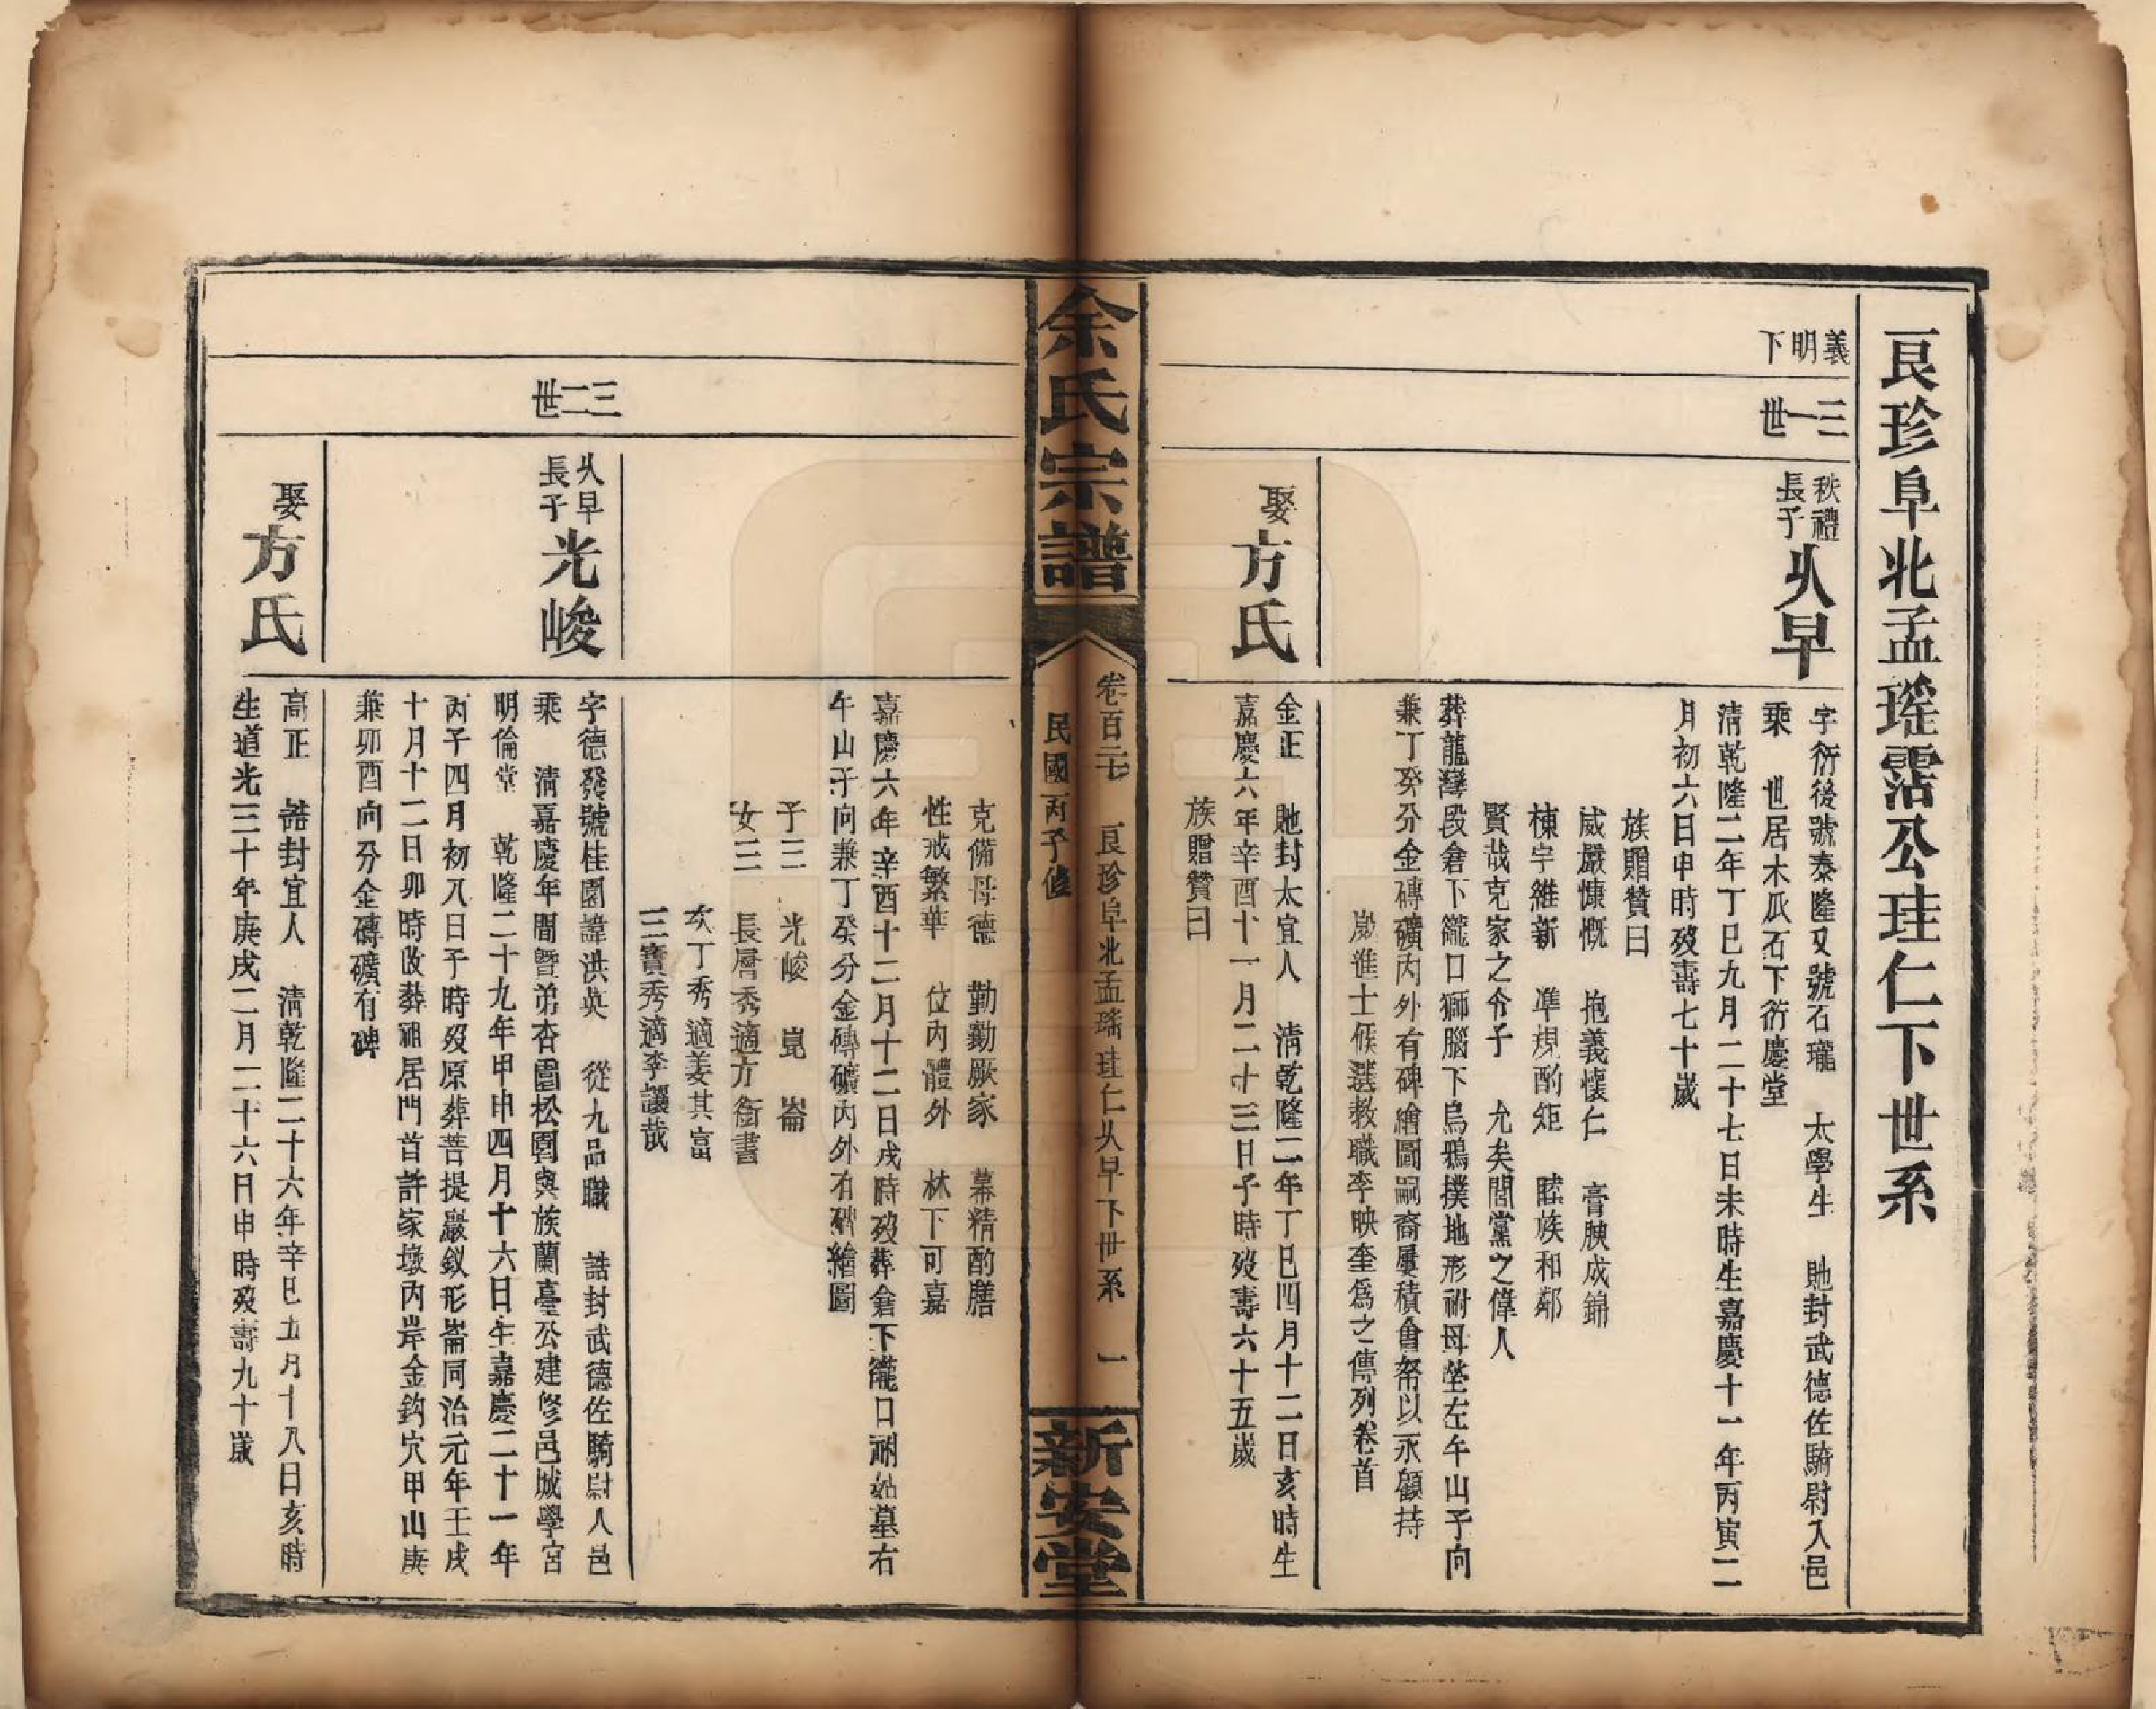 艮珍阜北孟瑤霑公珪仁下世系
義明下
三一世
秩禮長子
乆早
字衍後號泰隆又號石瓏　太學生　貤封武德佐騎尉入邑
乘　世居木瓜石下衍慶堂
淸乾隆二年丁巳九月二十七日未時生嘉慶十一年丙寅二
月初六日申時歿壽七十歲
族贈贊曰
威嚴慷慨　抱義懷仁　膏腴成錦
棟宇維新　準規酌矩　睦族和鄰
賢哉克家之令子　允矣閭黨之偉人
葬龍灣段倉下𡑞口獅腦下烏鴉撲地形祔母塋左午山子向
兼丁癸分金磚礦內外有碑繪圖嗣裔屢積會帑以永顧持
歲進士候選教職李映奎爲之傳列卷首
娶方氏
金正　貤封太宜人　淸乾隆二年丁巳四月十二日亥時生
嘉慶六年辛酉十一月二十三日子時歿壽六十五歲
族贈贊曰
余氏宗譜
卷百二七　艮珍阜北孟瑤珪仁乆早下世系　一
民國丙子修
新安堂
克備母德　勤勷厥家　幕精酌膳
性戒繁華　位內體外　林下可嘉
嘉慶六年辛酉十二月十二日戌時歿葬倉下𡑞口祔姑墓右
午山子向兼丁癸分金磚礦內外有碑繪圖
子三　光峻　崑　崙
女三　長層秀適方衡書
次丁秀適姜其富
三寶秀適李讓哉
三二世
乆早長子
光峻
字德發號桂園諱洪英　從九品職　誥封武德佐騎尉人邑
乘　淸嘉慶年間暨弟杏園松園與族蘭臺公建修邑城學宮
明倫堂　乾隆二十九年甲申四月十六日生嘉慶二十一年
丙子四月初八日子時歿原葬菩提巖釵形崙同治元年壬戌
十月十二日卯時改葬祖居門首許家墩內岸金鈎穴甲山庚
兼卯酉向分金磚礦有碑
娶方氏
高正　誥封宜人　淸乾隆二十六年辛巳五月十八日亥時
生道光三十年庚戌二月二十六日申時歿壽九十歲